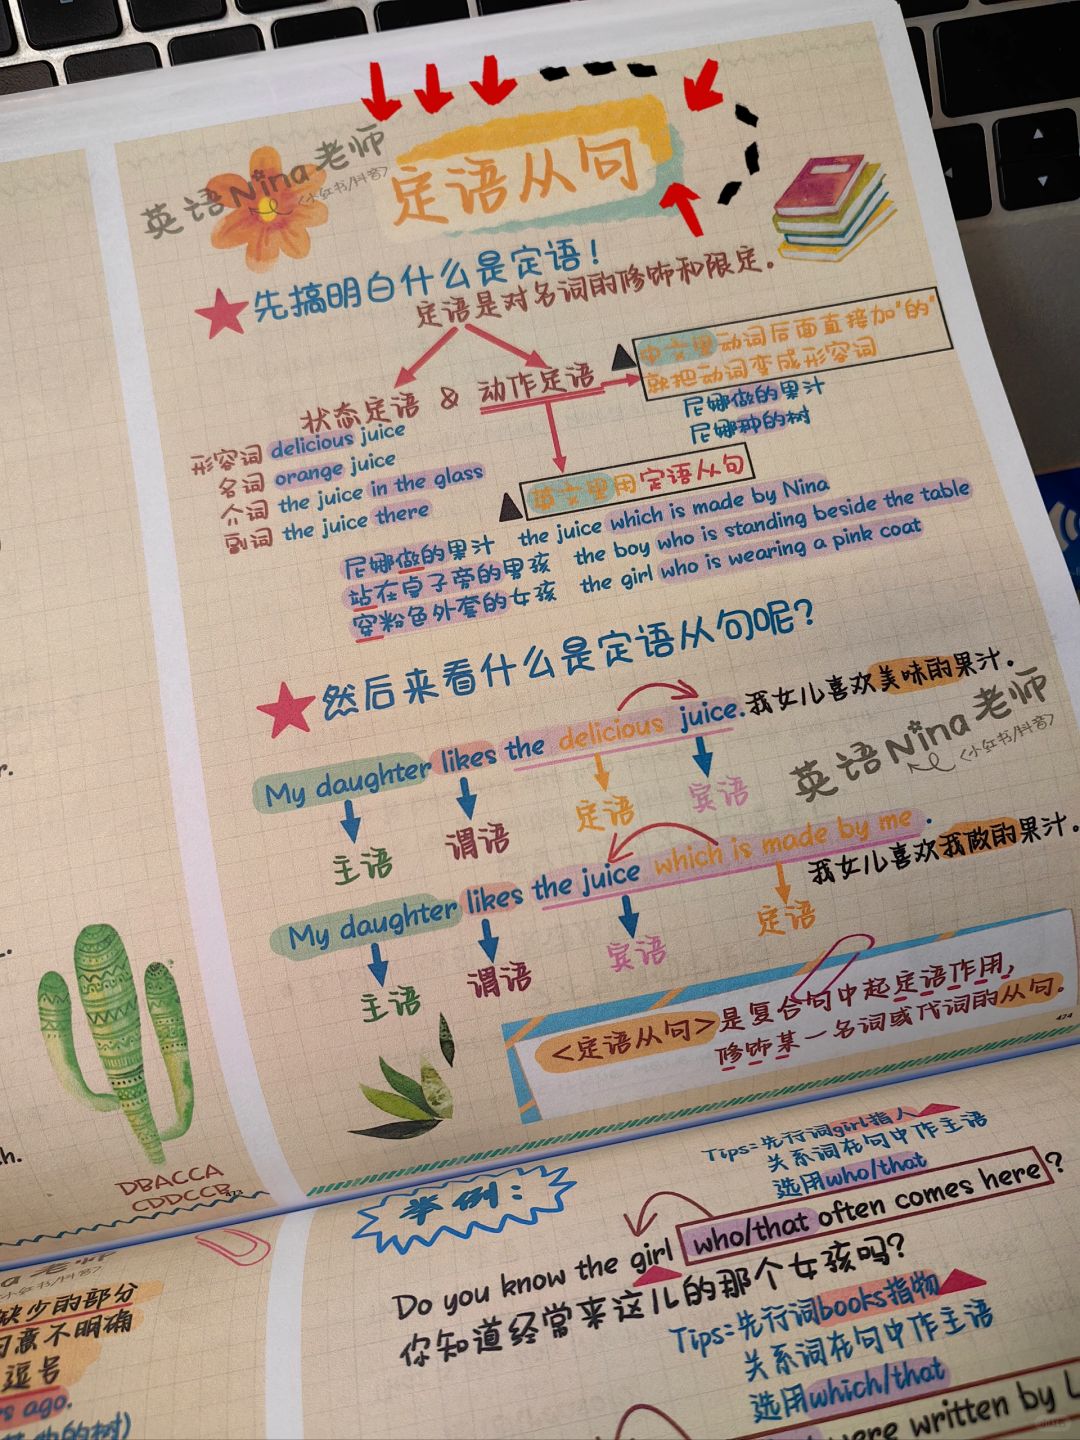 英语Nina老师
<小红书/抖音>
定语从句
先搞明白什么是定语！
定语是对名词的修饰和限定。
状态定语 & 动作定语
中文里动词后面直接加"的"
就把动词变成形容词
尼娜做的果汁
尼娜种的树
形容词 delicious juice
名词 orange juice
介词 the juice in the glass
副词 the juice there
英文里用定语从句
尼娜做的果汁 the juice which is made by Nina
站在桌子旁的男孩 the boy who is standing beside the table
穿粉色外套的女孩 the girl who is wearing a pink coat
然后来看什么是定语从句呢?
My daughter likes the delicious juice. 我女儿喜欢美味的果汁.
主语 谓语 定语 宾语
英语Nina老师
<小红书/抖音>
My daughter likes the juice which is made by me.
我女儿喜欢我做的果汁.
主语 谓语 宾语 定语
<定语从句>是复合句中起定语作用,
修饰某一名词或代词的从句.
424
r.
h.
DBACCA
CDDCCB
423
举例:
Tips:先行词girl指人
关系词在句中作主语
选用who/that
Do you know the girl who/that often comes here?
你知道经常来这儿的那个女孩吗?
Tips:先行词books指物
关系词在句中作主语
选用which/that
were written by L
<小红书/抖音>
缺少的部分
意不明确
逗号
rs ago.
的树)